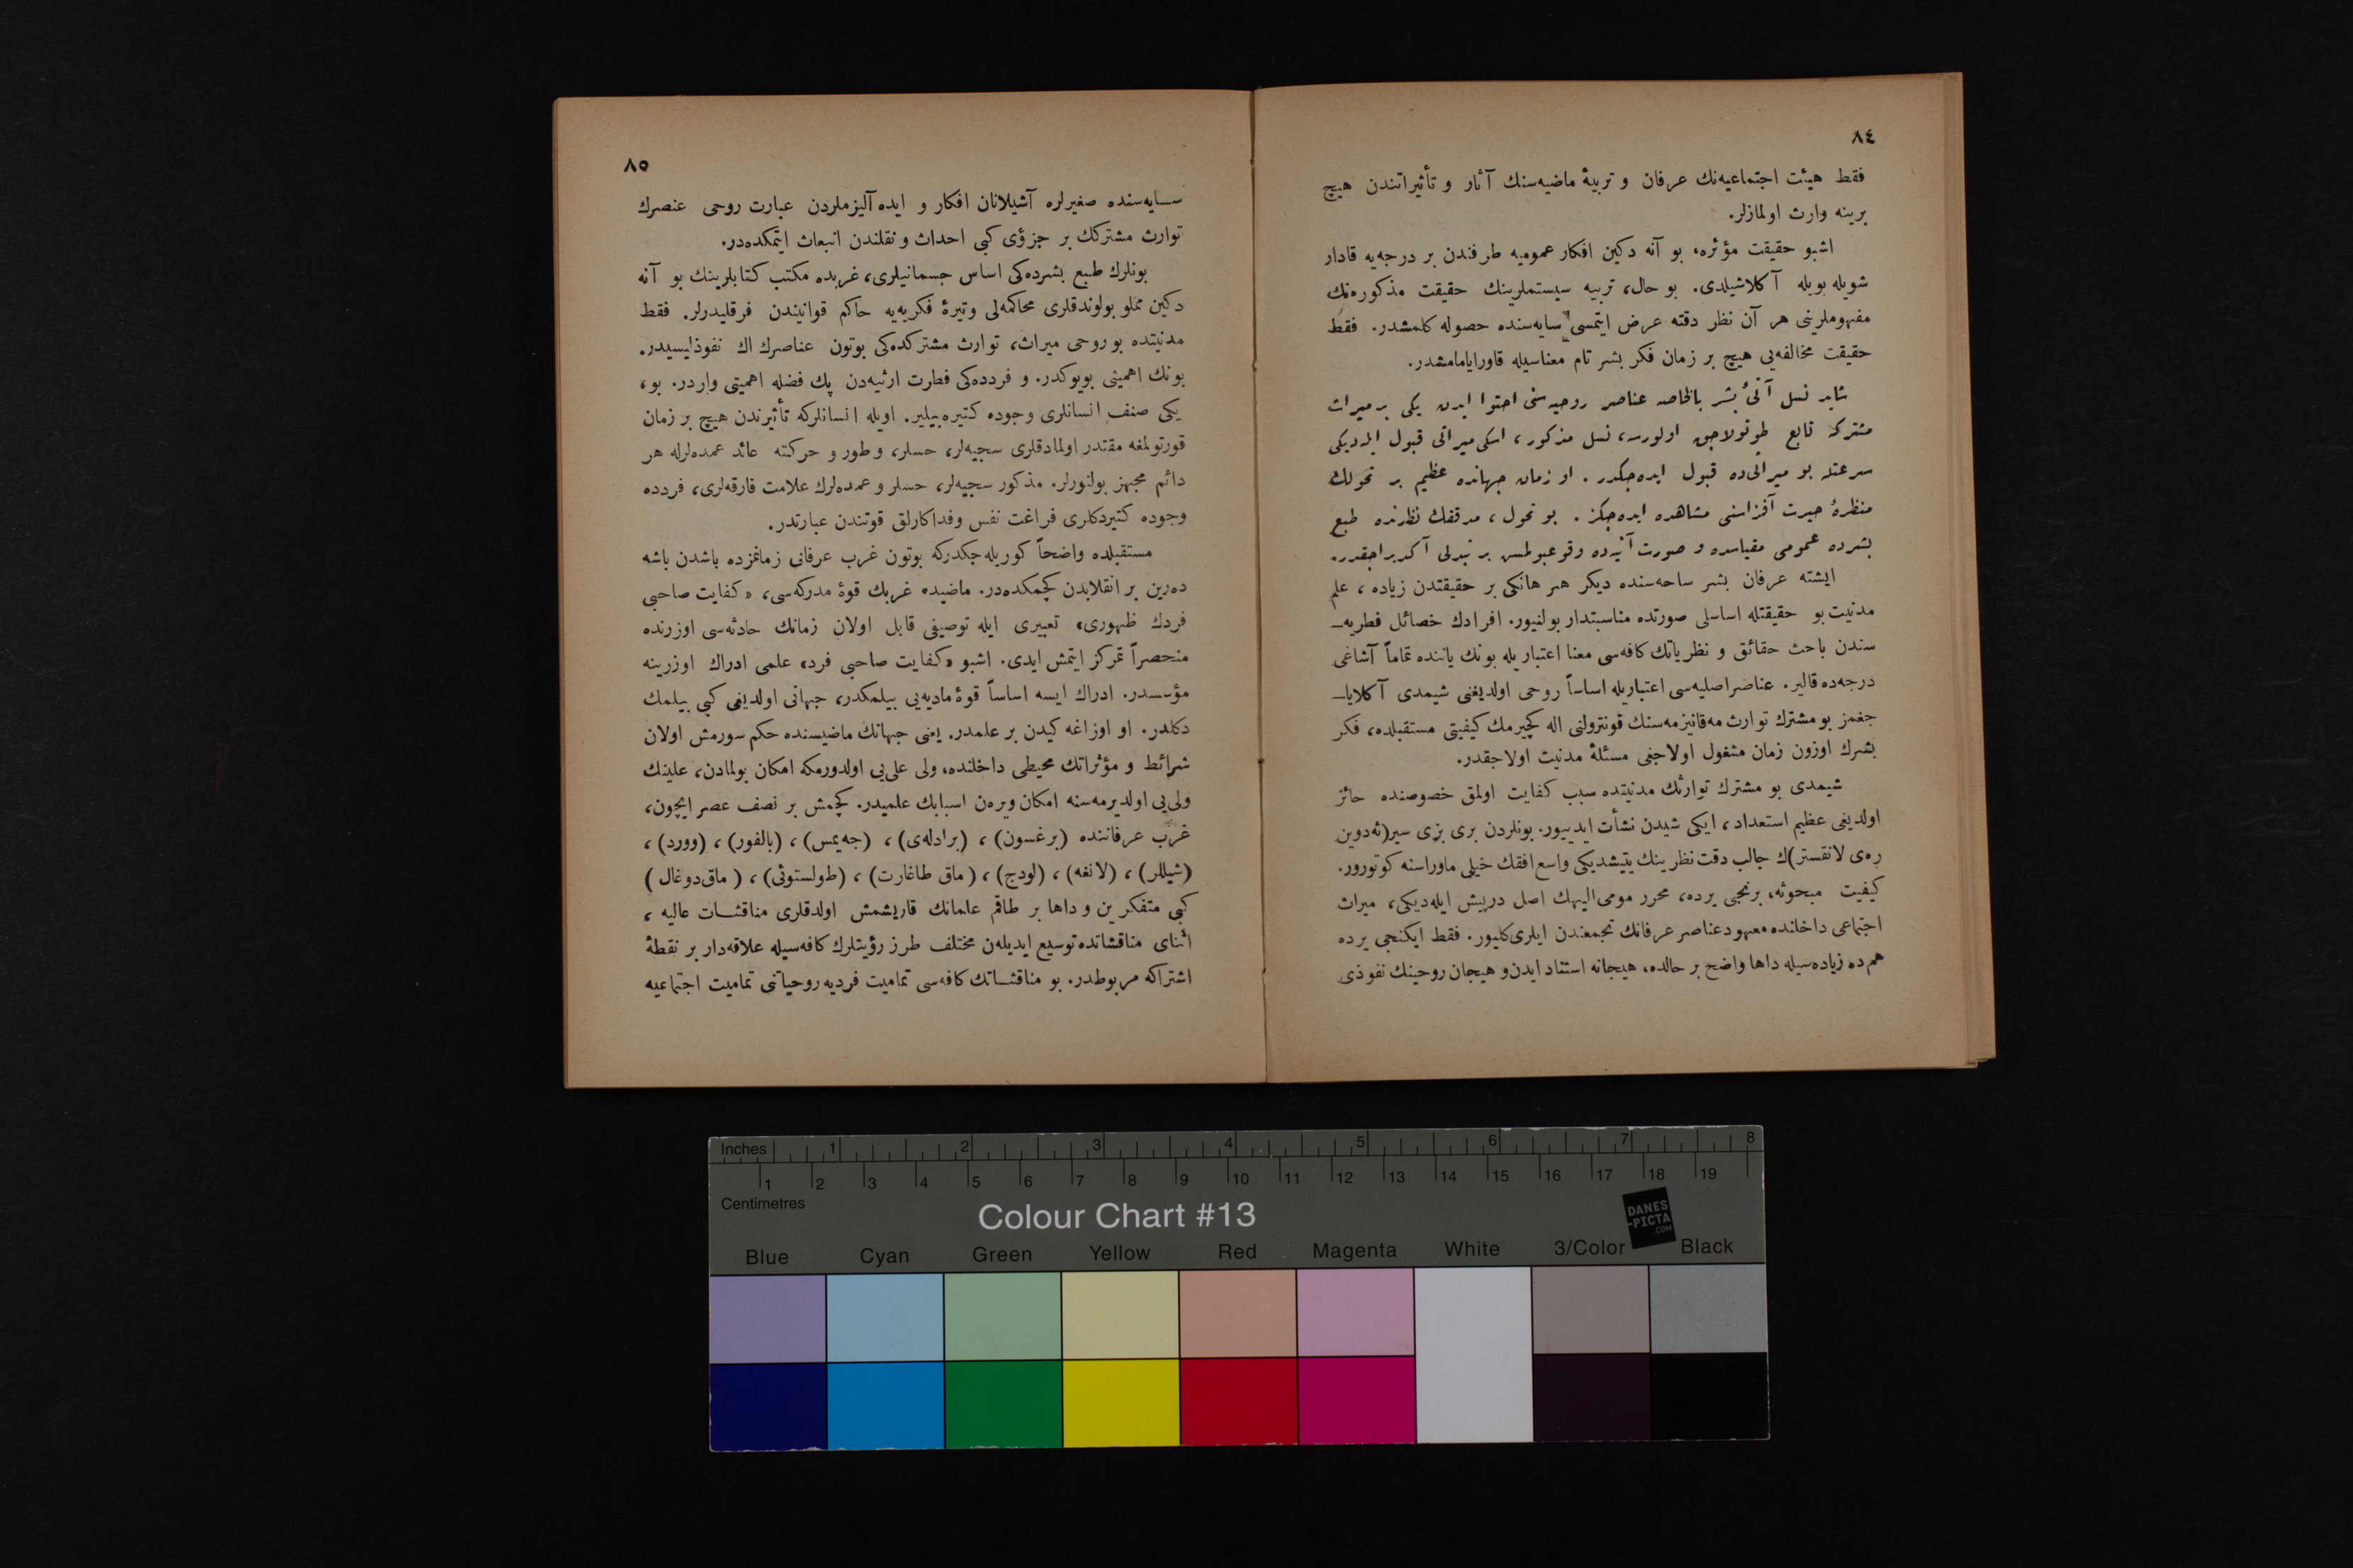 ٨٤
فقط هيئت اجتماعيه‌نك عرفان و تربيۀ ماضيه‌سنك آثار و تأثيراتندن هيچ
برينه وارث اولمازلر.
اشبو حقيقت مؤثره، بو آنه دكين افكار عموميه طرفندن بر درجه‌يه قادار
شويله بويله آ كلاشيلدى. بو حال، تربيه سيستملرينك حقيقت مذكوره‌نك
مفهوملرينى هر آن نظر دقته عرض ايتمسى سايه‌سنده حصوله كلمشدر. فقط
حقيقت مخالفه‌يى هيچ بر زمان فكر بشر تام معناسيله قاوراياما‌مشدر.
شايد نسل آتىٔ بشر بالخاصه عناصر روحيه‌سنى احتوا ايدن يكى بر ميراث
مشتركه تابع طوتولاجق اولورسه، نسل مذكور، اسكى ميراثى قبول ايله‌ديكى
سرعتله بو ميراثى ده قبول ايده‌جكدر . او زمان جهانده عظيم بر تحولك
منظرۀ حيرت آفزاسنى مشاهده ايده‌جكز . بو تحول ، مدققك نظرنده طبع
بشرده عمومى مقياسده و صورت آنيه‌ده وقوعبولمش بر تبدلى آكديراجقدر.
ايشته عرفان بشر ساحه‌سنده ديكر هر هانكى بر حقيقتدن زياده ، علم
مدنيت بو حقيقتله اساسلى صورتده مناسبتدار بولنيور. افرادك خصائل فطريه‌ـ
سندن باحث حقائق و نظرياتك كافه‌سى معنا اعتباريله بونك ياننده تماماً آشاغى
درجه‌ده قالير. عناصر اصليه‌سى اعتباريله اساساً روحى اولديغنى شيمدى آ كلاياـ
جغمز بو مشترك توارث مه‌قانيزمه‌سنك قونترولنى اله كچيرمك كيفيتى مستقبلده، فكر
بشرك اوزون زمان مشغول اولاجغى مسئلۀ مدنيت اولاجقدر.
شيمدى بو مشترك توارثك مدنيتده سبب كفايت اولمق خصوصنده حائز
اولديغى عظيم استعداد، ايكى شيدن نشأت ايديیور. بونلردن برى بزى سير(ئه‌دوين
ره‌ى لانقستر)ك جالب دقت نظرينك يتيشديكى واسع افقك خيلى ماوراسنه كوتورور.
كيفيت مبحوثه، برنجى يرده، محرر مومى اليهك اصل درپيش ايله‌ديكى، ميراث
اجتماعى داخلنده معهود عناصر عرفانك تجمعندن ايلرى كليور. فقط ايكنجى يرده
هم ده زياده‌سيله داها واضح بر حالده، هيجانه استناد ايدن و هيجان روحينك نفوذى
٨٥
سـايه‌سنده صغيرلره آشيلانان افكار و ايده آليزملردن عبارت روحى عنصرك
توارث مشتركك بر جزؤى كبى احداث و نقلندن انبعاث ايتمكده‌در.
بونلرك طبع بشرده‌كى اساس جسمانيلرى، غربده مكتب كتابلرينك بو آنه
دكين مملو بولوندقلرى محاكمه‌لى وتيرۀ فكريه‌يه حاكم قوانيندن فرقليدرلر. فقط
مدنيتده بو روحى ميراث، توارث مشتركده‌كى بوتون عناصرك اك نفوذليسيدر.
بونك اهميتى بويوكدر. و فردده‌كى فطرت ارثيه‌دن پك فضله اهميتى واردر. بو،
يكى صنف انسانلرى وجوده كتيره‌بيلير. اويله انسانلركه تأثيرندن هيچ بر زمان
قورتولمغه مقتدر اولمادقلرى سجيه‌لر، حسلر، و طور و حركته عائد عمده‌لرله هر
دائم مجهز بولنورلر. مذكور سجيه‌لر، حسلر و عمده‌لرك علامت فارقه‌لرى، فردده
وجوده كتيردكلرى فراغت نفس و فداكارلق قوتندن عبارتدر.
مستقبلده واضحاً كوريله جكدركه بوتون غرب عرفانى زمانمزده باشدن باشه
ده‌رين بر انقلابدن كچمكده‌در. ماضيده غربك قوۀ مدركه‌سى، «كفايت صاحبى
فردك ظهورى» تعبيرى ايله توصيفى قابل اولان زمانك حادثه‌سى اوزرنده
منحصراً تمركز ايتمش ايدى. اشبو «كفايت صاحبى فرد» علمى ادراك اوزرينه
مؤسسدر. ادراك ايسه اساساً قوۀ ماديه‌يى بيلمكدر، جهانى اولديغى كبى بيلمك
دكلدر. او اوزاغه كيدن بر علمدر. يعنى جهانك ماضيسنده حكم سورمش اولان
شرائط و مؤثراتك محيطى داخلنده، ولى على‌يى اولدورمكه امكان بولمادن، علينك
ولى‌يى اولديرمه‌سنه امكان ويره‌ن اسبابك علميدر. كچمش بر نصف عصر ايچون،
غرب عرفاننده (برغسون) ، (برادله‌ى) ، (جه‌يمس) ، (بالفور) ، (وورد) ،
(شيللر) ، (لانغه) ، (لودج) ، (ماق طاغارت) ، (طولستوئى) ، (ماق‌دوغال)
كبى متفكرين و داها بر طاقم علمانك قاريشمش اولدقلرى مناقشـات عاليه ،
اثناى مناقشاتده توسيع ايديله‌ن مختلف طرز رؤيتلرك كافه‌سيله علاقه‌دار بر نقطۀ
اشتراكه مربوطدر. بو مناقشـاتك كافه‌سى تماميت فرديه روحياتنى تماميت اجتماعيه
Inches 1 2 3 4 5 6 7 8
1 2 3 4 5 6 7 8 9 10 11 12 13 14 15 16 17 18 19
Centimetres
Colour Chart #13
DANES
-PICTA
.COM
Blue Cyan Green Yellow Red Magenta White 3/Color Black